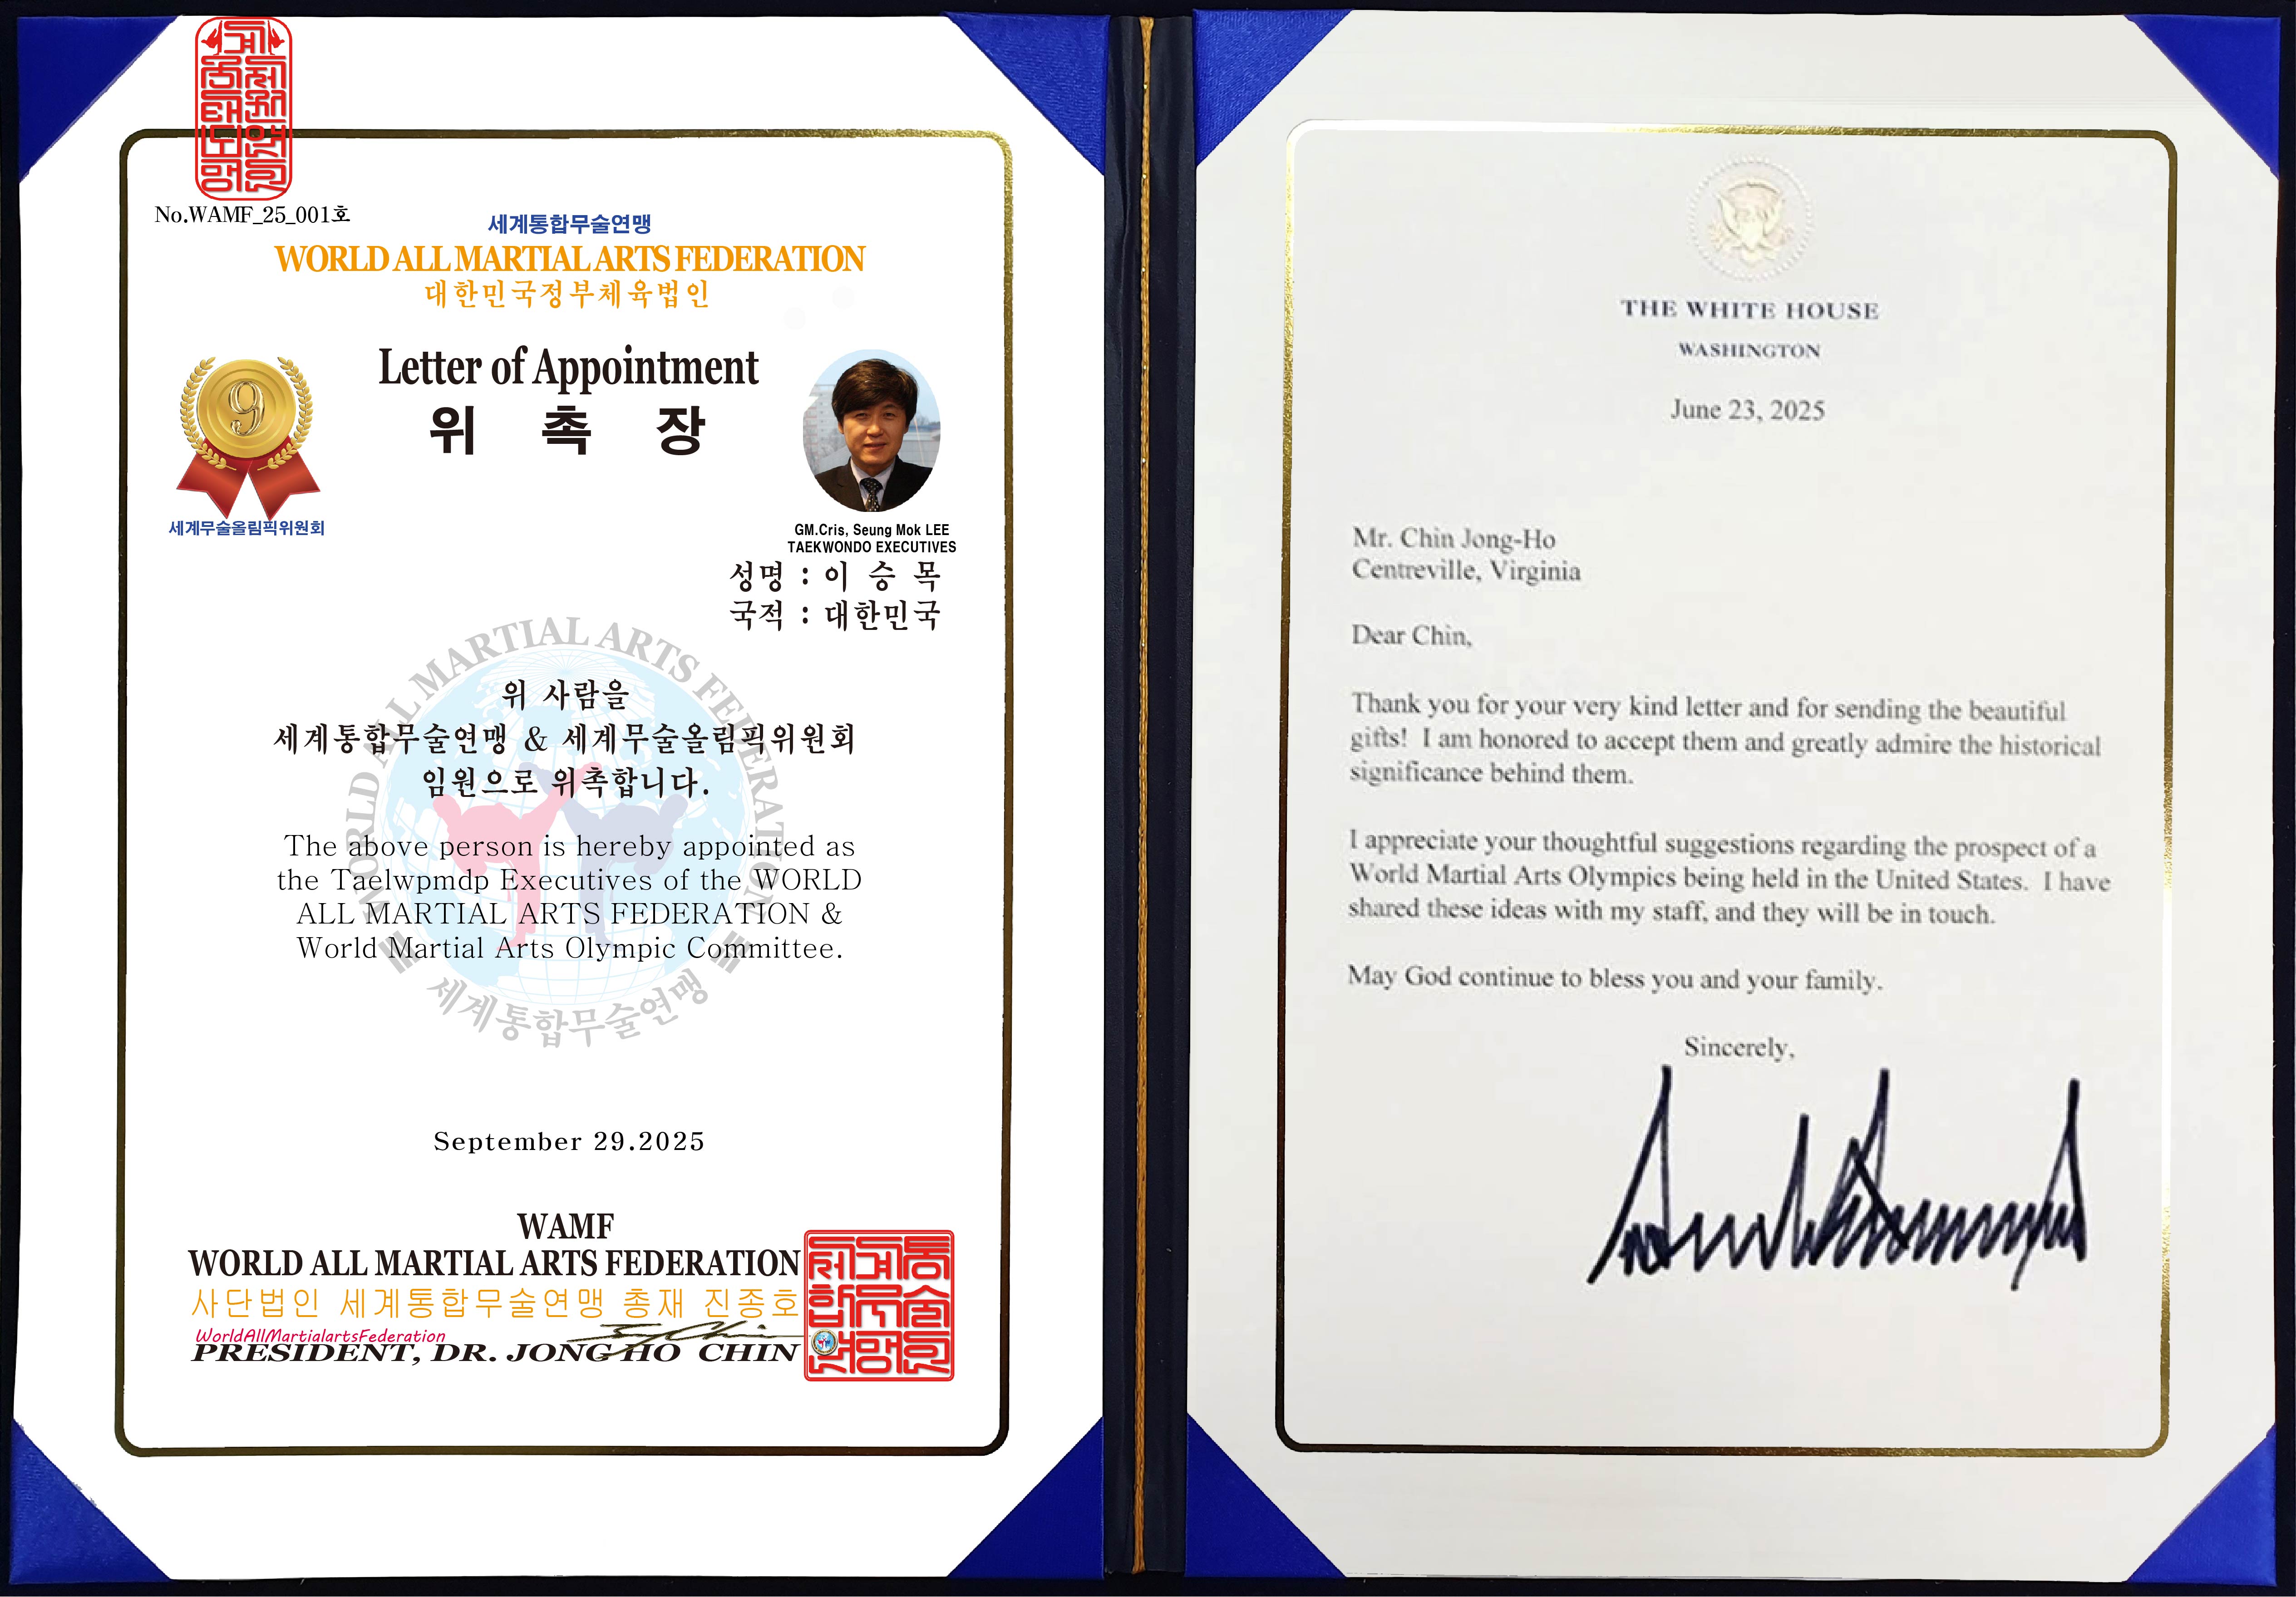 세계태권도연맹
No.WAMF_25_001호
세계통합무술연맹
WORLD ALL MARTIAL ARTS FEDERATION
대한민국정부체육법인
Letter of Appointment
위 촉 장
9
세계무술올림픽위원회
GM.Cris, Seung Mok LEE
TAEKWONDO EXECUTIVES
성명 : 이 승 목
국적 : 대한민국
WORLD ALL MARTIAL ARTS FEDERATION
위 사람을
세계통합무술연맹 & 세계무술올림픽위원회
임원으로 위촉합니다.
The above person is hereby appointed as
the Taelwpmdp Executives of the WORLD
ALL MARTIAL ARTS FEDERATION &
World Martial Arts Olympic Committee.
세계통합무술연맹
September 29.2025
WAMF
WORLD ALL MARTIAL ARTS FEDERATION
사단법인 세계통합무술연맹 총재 진종호
WorldAllMartialartsFederation
PRESIDENT, DR. JONG HO CHIN
THE WHITE HOUSE
WASHINGTON
June 23, 2025
Mr. Chin Jong-Ho
Centreville, Virginia
Dear Chin,
Thank you for your very kind letter and for sending the beautiful
gifts! I am honored to accept them and greatly admire the historical
significance behind them.
I appreciate your thoughtful suggestions regarding the prospect of a
World Martial Arts Olympics being held in the United States. I have
shared these ideas with my staff, and they will be in touch.
May God continue to bless you and your family.
Sincerely,